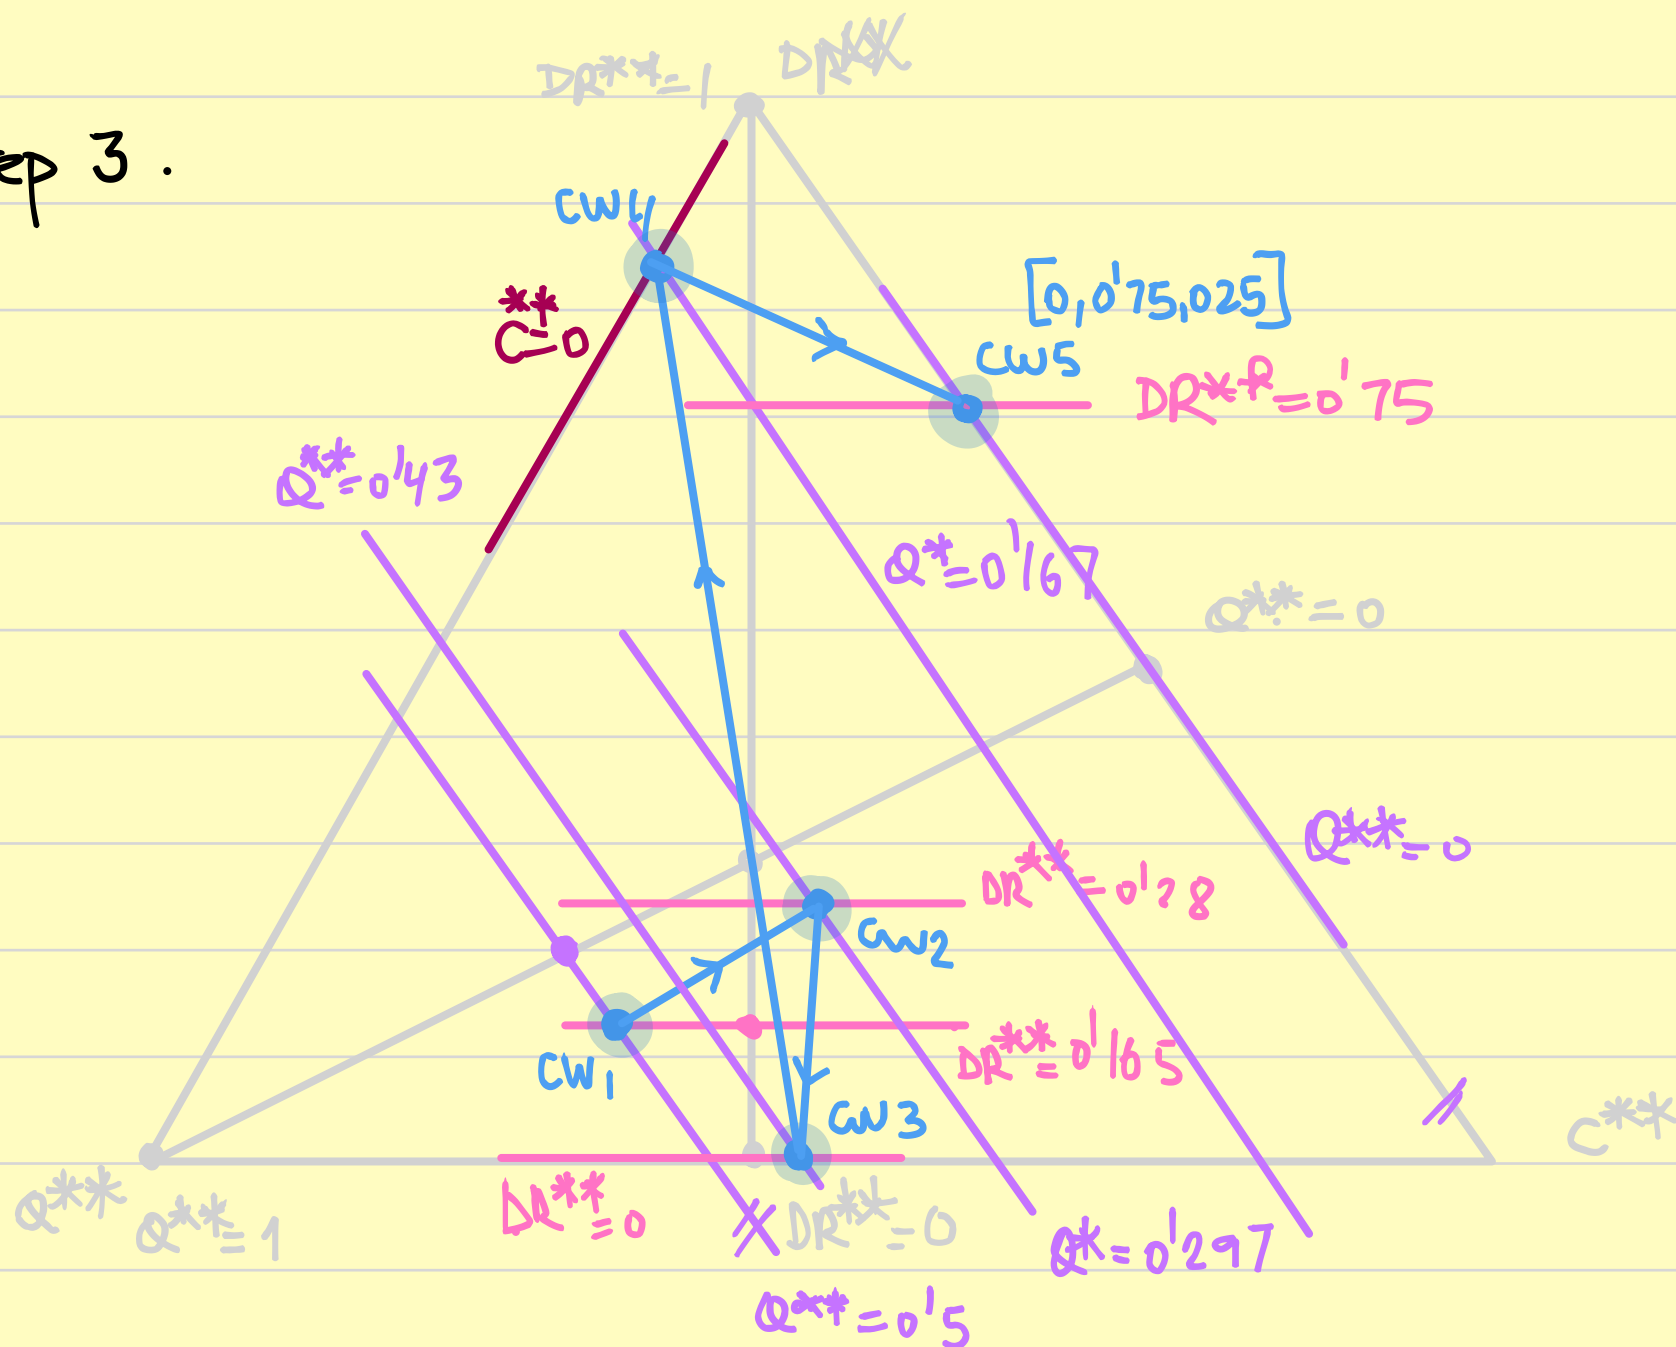 DR**=1
ep 3.
CW4
C**=0
[0,0'75,025]
CW5
DR**=0'75
Q**=0'43
Q**=0'167
Q**=0
Q**=0
DR**=0'28
CW2
DR**=0'165
CW1
CW3
C**
Q**
Q**=1
DR**=0
DR**=0
Q**=0'297
Q**=0'5